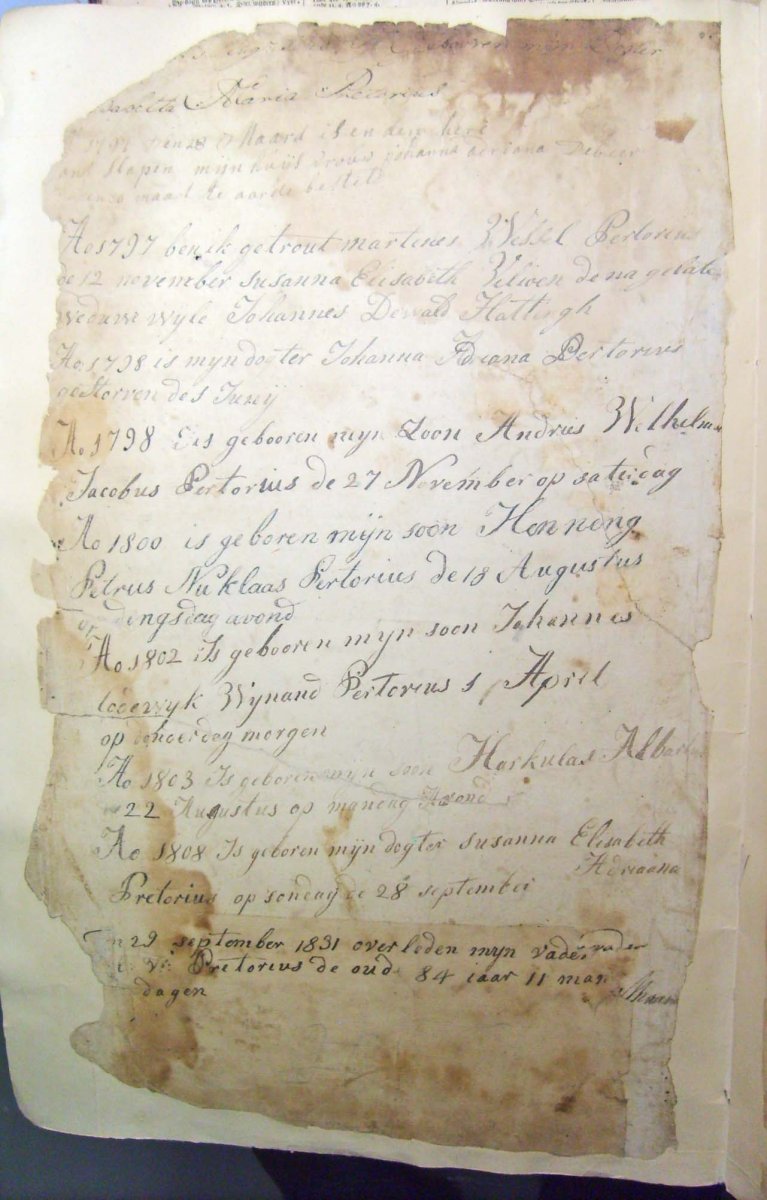 Gebooren mijn Dogter
Maria Pretorius
den 28 Maard is en den here
Slapen mijn huijs vrouw johanna adriana Debeer
maart te aarde bestelt
Ao 1797 ben ik getrout martenes Wessel Pertorius
de 12 november susanna Elisabeth Viljoen de na gelate
weduwe wyle Johannes Dewald Hattingh
Ao 1798 is myn dogter Johanna Adreana Pertorius
gestorven de 5 Junij
Ao 1798 Is gebooren myn Zoon Andries Welhelmus
Jacobus Pertorius de 27 November op saterdag
Ao 1800 is geboren mijn soon Hennong
Petrus Nuklaas Pertorius de 18 Augustus
op dingsdag avond
Ao 1802 Is geboren myn soon Johannes
lodewyk Wynand Pertorius 1 April
op donderdag morgen
Ao 1803 Is geboren myn soon Harkulas Albartus
22 Augustus op mandag Avond
Ao 1808 Is geboren myn dogter susanna Elisabeth
Adriaana
Pretorius op sondag de 28 september
29 september 1831 overleden myn vader
Pretorius de oud 84 jaar 11 maan
dagen